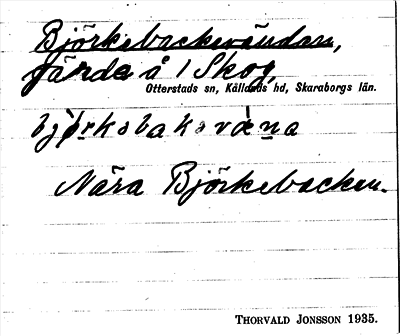 Björkebackevändan,
gärde å 1 Skog,
Otterstads sn, Kållands hd, Skaraborgs län.
Nära Björkebacken.
THORVALD JONSSON 1935.